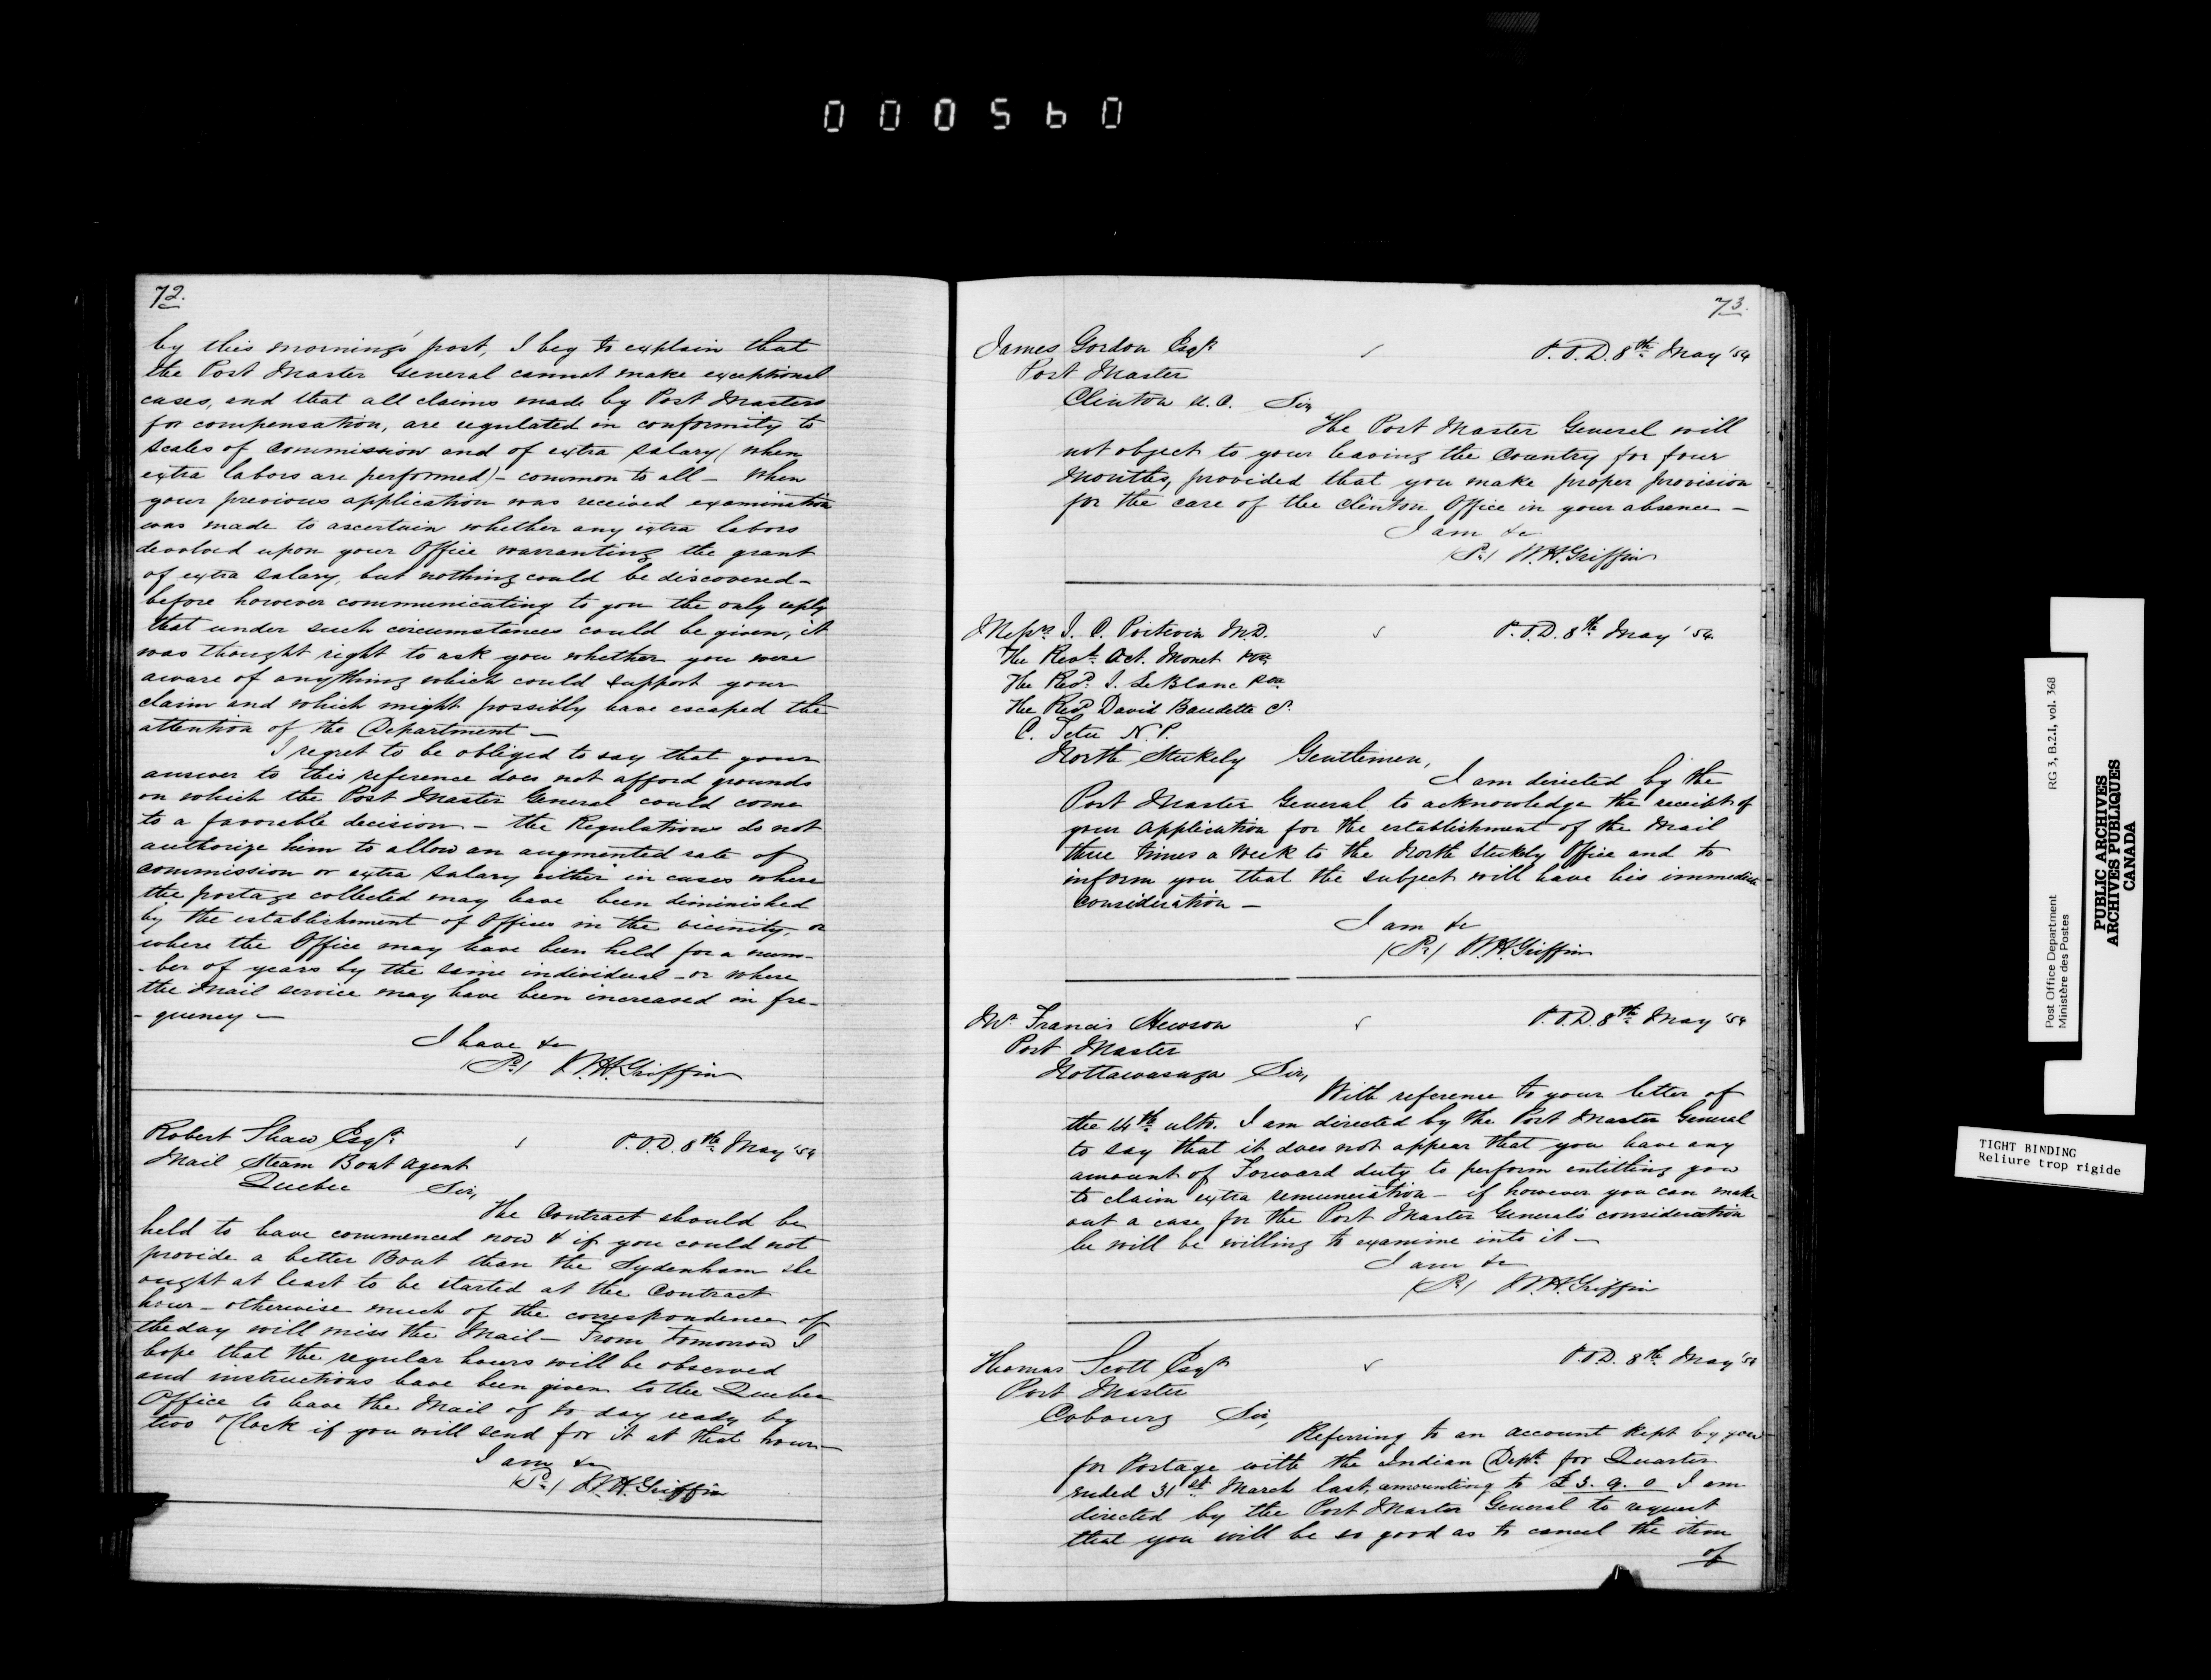 0000560
72.
by this morning's post, I beg to explain that
the Post Master General cannot make exceptional
cases, and that all claims made by Post Masters
for compensation, are regulated in conformity to
scales of commission and of extra salary (when
extra labors are performed) - common to all - When
your previous application was received examination
was made to ascertain whether any extra labors
devolved upon your Office warranting the grant
of extra salary, but nothing could be discovered -
before however communicating to you the only reply
that under such circumstances could be given, it
was thought right to ask you whether you were
aware of anything which could support your
claim and which might possibly have escaped the
attention of the Department -
I regret to be obliged to say that your
answer to this reference does not afford grounds
on which the Post Master General could come
to a favorable decision - the Regulations do not
authorize him to allow an augmented rate of
commission or extra salary either in cases where
the postage collected may have been diminished
by the establishment of Offices in the vicinity, or
where the Office may have been held for a num-
-ber of years by the same individual - or where
the Mail service may have been increased in fre-
- quency -
I have &c
W.H. Griffin
Robert Shaw Esqr. P.O.D. 8th May '54
Mail Steam Boat Agent
Quebec Sir,
The Contract should be
held to have commenced now & if you could not
provide a better Boat than the Sydenham she
ought at least to be started at the Contract
hour - otherwise much of the correspondence of
the day will miss the Mail - From tomorrow I
hope that the regular hours will be observed
and instructions have been given to the Quebec
Office to have the Mail of to day ready by
two O'Clock if you will send for it at that hour -
I am &c
W.H. Griffin
73.
James Gordon Esqr. P.O.D. 8th May '54
Post Master
Clinton U.C. Sir,
The Post Master General will
not object to your leaving the Country for four
Months, provided that you make proper provision
for the care of the Clinton Office in your absence -
I am &c
W.H. Griffin
Messrs J. C. Poitevin M.D. P.O.D. 8th May '54
The Revd. Act. Monet
The Revd. J. LeBlanc
The Revd David Baudette
C. Tetu N.P.
North Stukely Gentlemen,
I am directed by the
Post Master General to acknowledge the receipt of
your application for the establishment of the Mail
three times a Week to the North Stukely Office and to
inform you that the subject will have his immediate
consideration -
I am &c
W.H. Griffin
Mr Francis Hewson P.O.D. 8th May '54
Post Master
Nottawasaga Sir,
With reference to your letter of
the 14th ulto. I am directed by the Post Master General
to say that it does not appear that you have any
amount of Forward duty to perform entitling you
to claim extra remuneration - if however you can make
out a case for the Post Master General's consideration
he will be willing to examine into it -
I am &c
W.H. Griffin
Thomas Scott Esqr P.O.D. 8th May '54
Post Master
Cobourg Sir,
Referring to an account kept by you
for Postage with the Indian Dept. for Quarter
ended 31st March last, amounting to £3. 9. 0 I am
directed by the Post Master General to request
that you will be so good as to cancel the item
of
Post Office Department RG 3, B.2.I, vol. 368
Ministère des Postes
PUBLIC ARCHIVES
ARCHIVES PUBLIQUES
CANADA
TIGHT BINDING
Reliure trop rigide